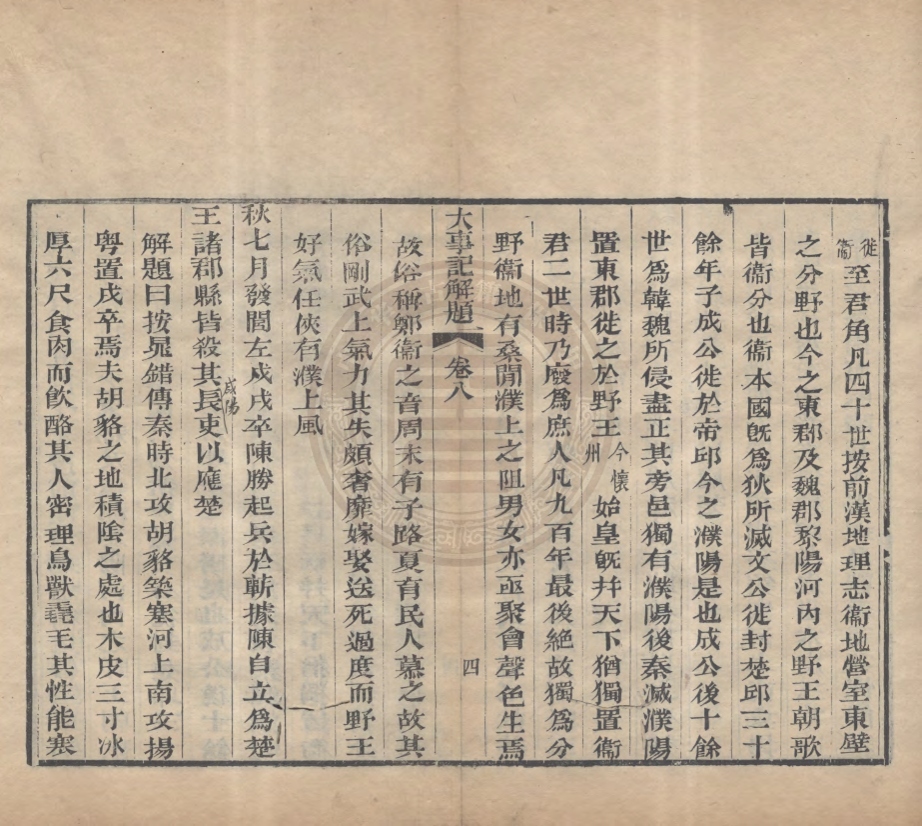 徙衞至君角凡四十世按前漢地理志衞地營室東壁
之分野也今之東郡及魏郡黎陽河內之野王朝歌
皆衞分也衞本國旣爲狄所滅文公徙封楚邱三十
餘年子成公徙於帝邱今之濮陽是也成公後十餘
世爲韓魏所侵盡正其旁邑獨有濮陽後秦滅濮陽
置東郡徙之於野王今懷州始皇旣幷天下猶獨置衞
君二世時乃廢爲庶人凡九百年最後絶故獨爲分
野衞地有桑閒濮上之阻男女亦亟聚會聲色生焉
大事記解題 卷八 四
故俗稱鄭衞之音周末有子路夏育民人慕之故其
俗剛武上氣力其失頗奢靡嫁娶送死過度而野王
好氣任俠有濮上風
秋七月發閭左戍戍卒陳勝起兵於蘄據陳自立爲楚
咸陽
王諸郡縣皆殺其長吏以應楚
解題曰按晁錯傳秦時北攻胡貉築塞河上南攻揚
粤置戍卒焉夫胡貉之地積陰之處也木皮三寸冰
厚六尺食肉而飲酪其人密理鳥獸毳毛其性能寒